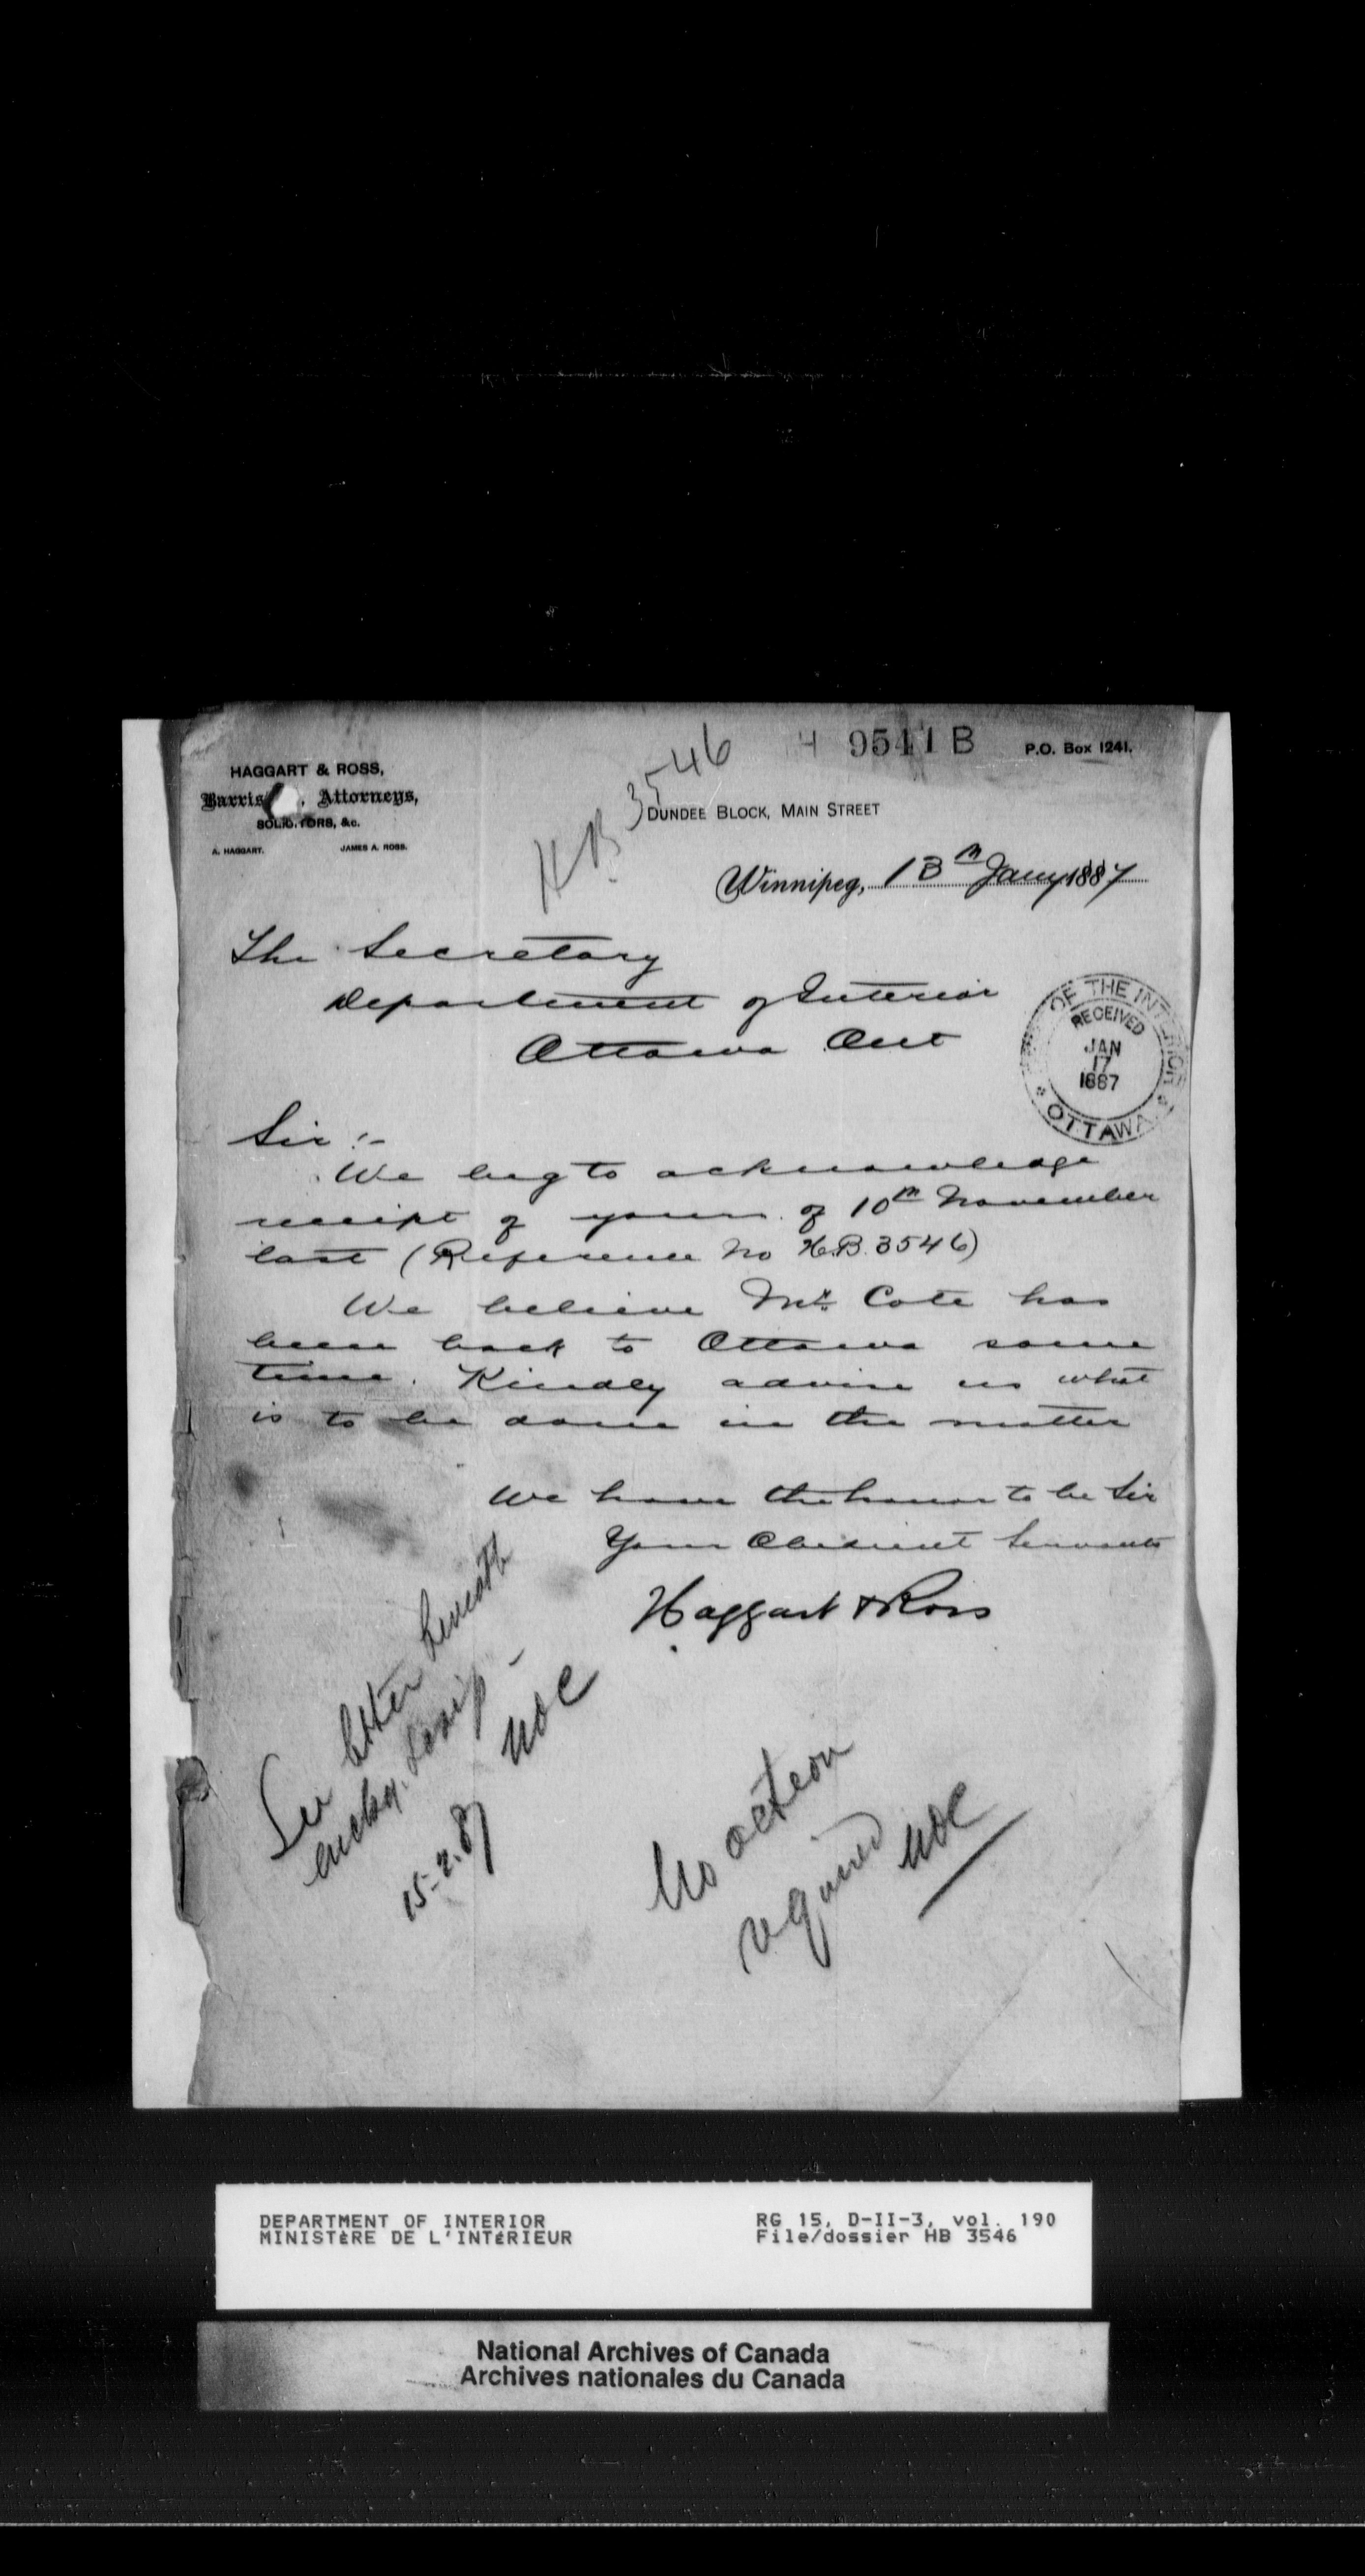 H 9541 B
P.O. Box 1241.
HB 3546
HAGGART & ROSS,
Barris , Attorneys,
SOLICITORS, &c.
A. HAGGART. JAMES A. ROSS.
DUNDEE BLOCK, MAIN STREET
Winnipeg, 13th Jany 1887
The Secretary
Department of Interior
Ottawa Ont
OF THE INTERIOR
RECEIVED
JAN
17
1887
* OTTAWA *
Sir :-
We beg to acknowledge
receipt of yours of 10th November
last (Reference No H.B. 3546)
We believe Mr. Cote has
been back to Ottawa some
time. Kindly advise us what
is to be done in the matter
We have the honor to be Sir
Your Obedient Servants
Haggart & Ross
See letter beneath
15-2.87
No action
required
DEPARTMENT OF INTERIOR
MINISTÈRE DE L'INTÉRIEUR
RG 15, D-II-3, vol. 190
File/dossier HB 3546
National Archives of Canada
Archives nationales du Canada